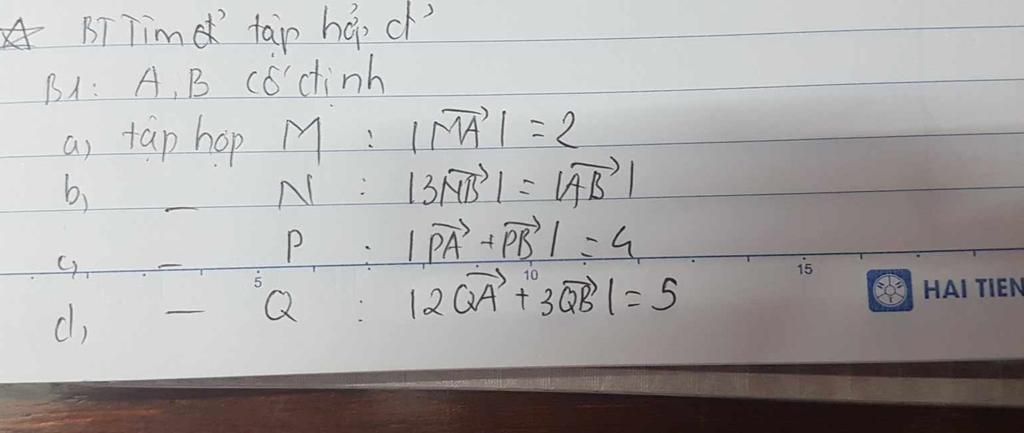 ☆ BT Tìm đ' tập hợp đ'
B1: A, B cố định
a, tập hợp M : |\overrightarrow{MA}| = 2
b, — N : |3\overrightarrow{NB}| = |\overrightarrow{AB}|
c, — P : |\overrightarrow{PA} + \overrightarrow{PB}| = 4
5 10 15
d, — Q : |2\overrightarrow{QA} + 3\overrightarrow{QB}| = 5
HAI TIEN